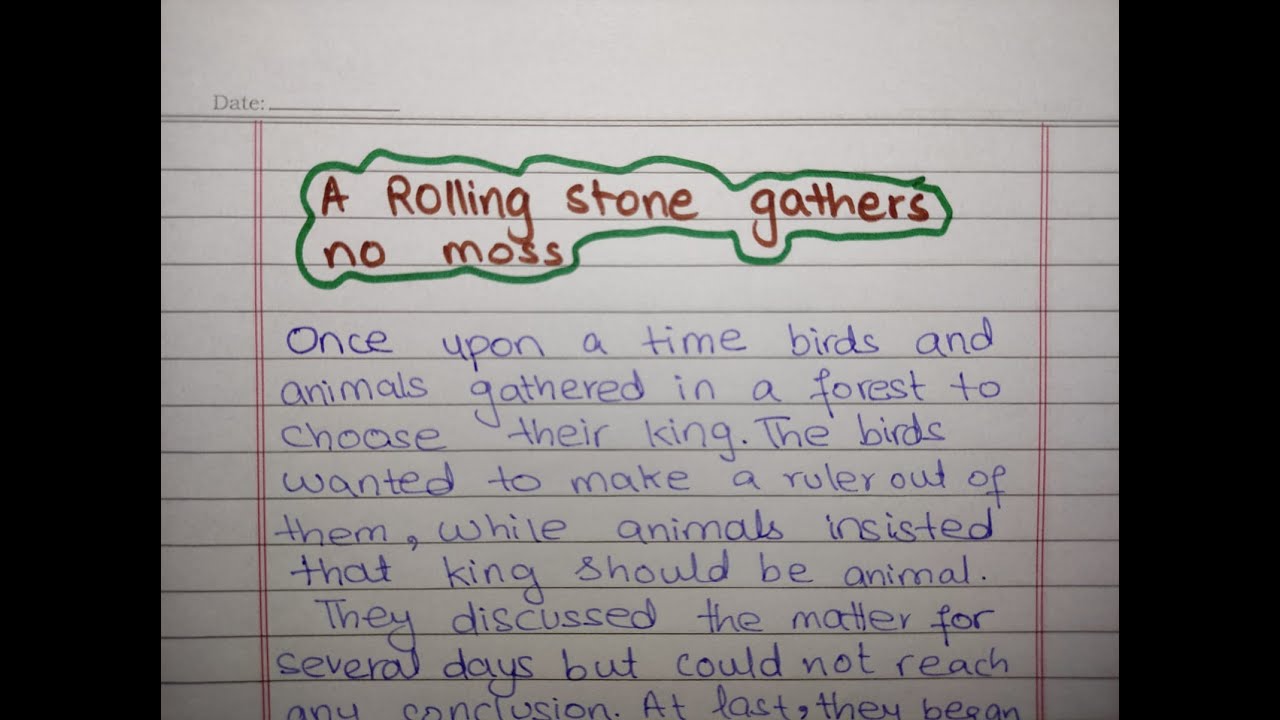 Date:
A Rolling stone gathers
no moss
Once upon a time birds and
animals gathered in a forest to
choose their king. The birds
wanted to make a ruler out of
them, while animals insisted
that king should be animal.
They discussed the matter for
several days but could not reach
any conclusion. At last, they began